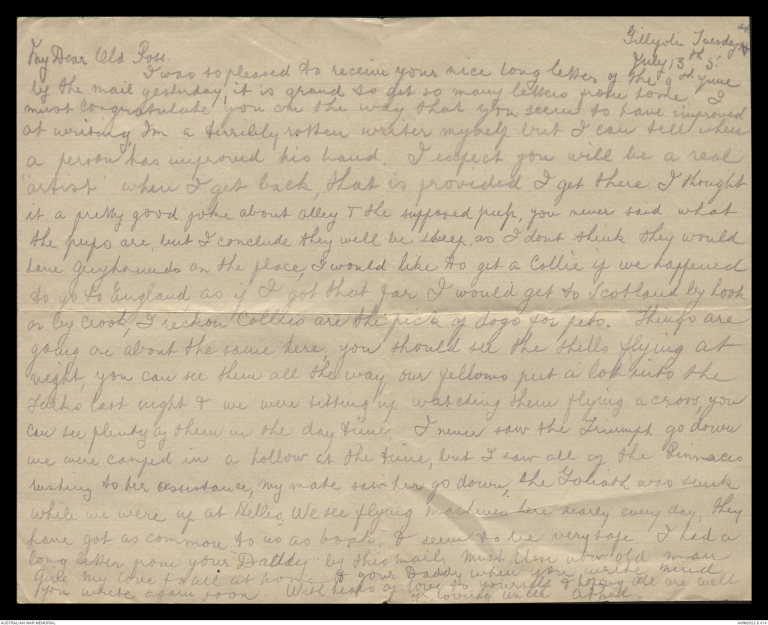 Gillipoli Tuesday
July 13th 5'
My Dear Old Pose.
I was so pleased to receive your nice long letter of the 9th June
by the mail yesterday, it is grand to get so many letters from home. I
must congratulate you on the way that you seem to have improved
at writing, Im a terribly rotten writer myself but I can tell when
a person has improved his hand. I expect you will be a real
artist when I get back, that is provided I get there. I thought
it a pretty good joke about alley & the supposed pups, you never said what
the pups are, but I conclude they will be sheep as I dont think they would
have greyhounds on the place, I would like to get a Collie if we happened
to go to England, as if I got that far I would get to Scotland by hook
or by crook, I reckon Collies are the pick of dogs for pets. Things are
going on about the same here, you should see the shells flying at
night, you can see them all the way our fellows put a lot into the
Turks last night & we were sitting up watching them flying across, you
can see plenty of them in the day time. I never saw the Triumph go down
we were camped in a hollow at the time, but I saw all of the Pinnaces
rushing to her assistance, my mate saw her go down, the Goliath was sunk
while we were up at Helles. We see flying machines here nearly every day, they
have got as common to us as & seem to be very safe. I had a
long letter from your Daddy by this mail. Must close now old man
give my love to all at home & your Daddy when you write mind
you write again soon. With heaps of love to yourself & hoping all are well
yr loving uncle
AUSTRALIAN WAR MEMORIAL